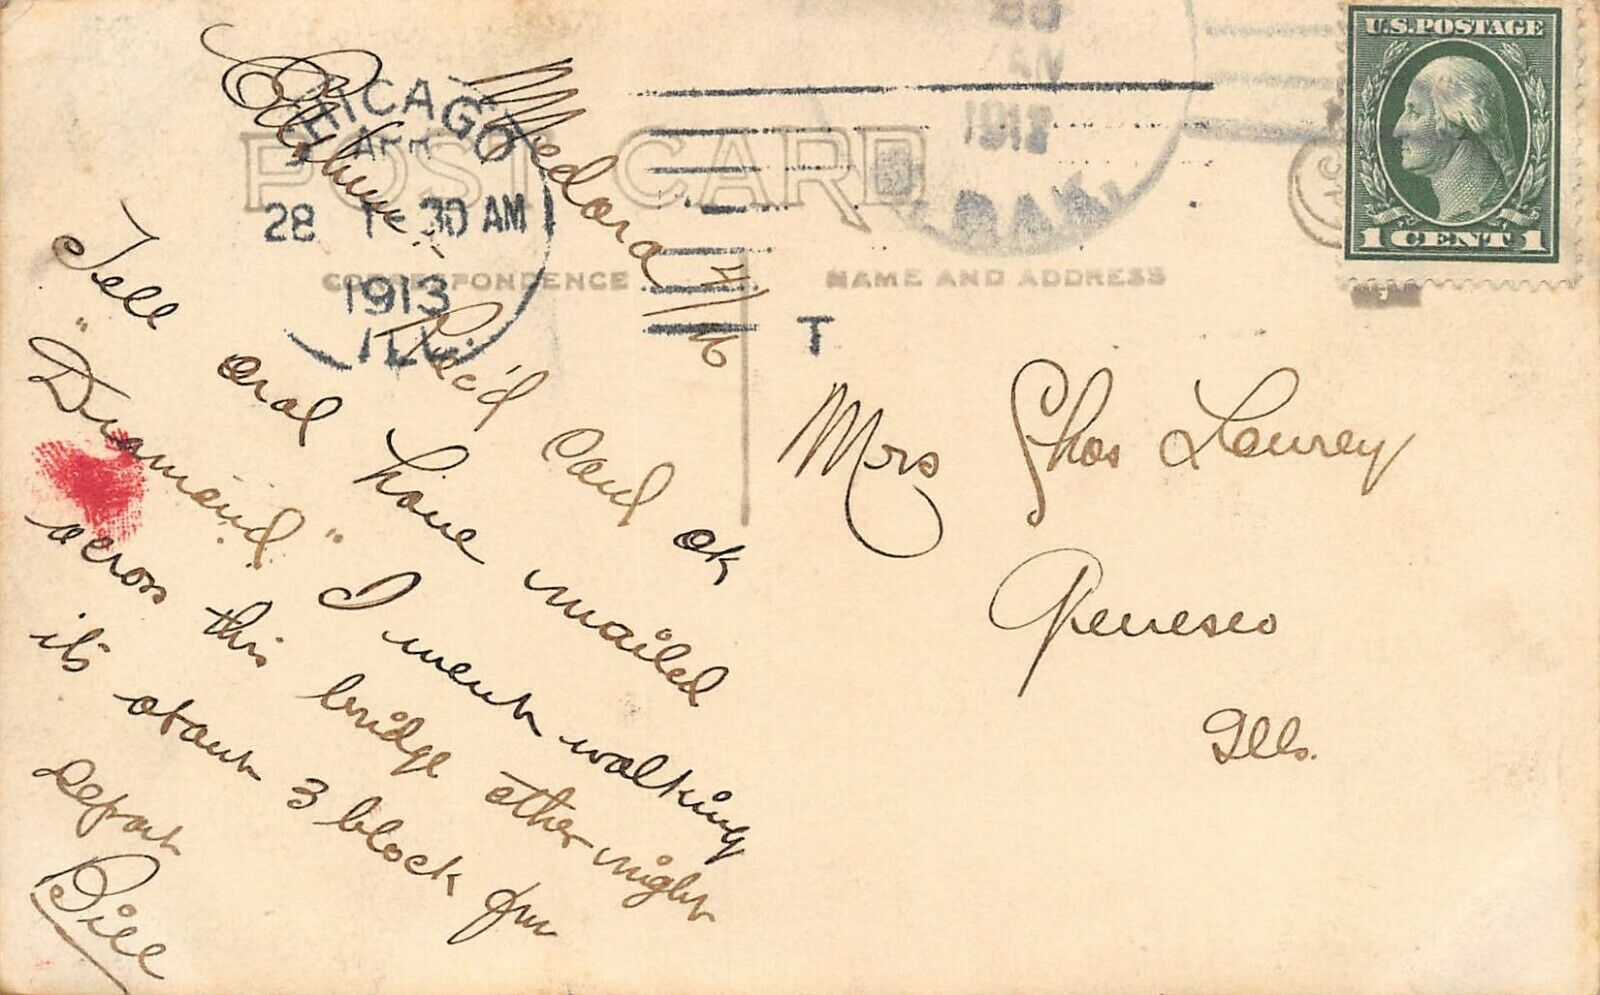 U.S. POSTAGE
1 CENT 1
CHICAGO
APR
28 30 AM
1913
ILL.
1913
DAK.
POST CARD
CORRESPONDENCE
NAME AND ADDRESS
T
Medora 4/26
Rec'd Card ok
Tell oral have mailed
"Diamond" I went walking
across this bridge other night
its about 3 block fm
Depot
Bill
Mrs Chas Lourey
Geneseo
Ills.